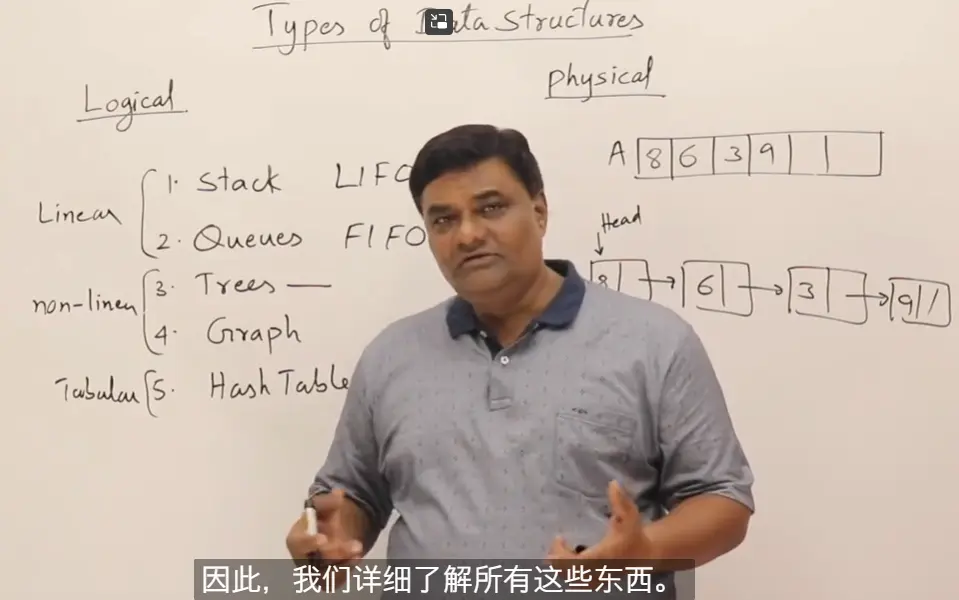 Types of Data Structures
Logical
Physical
Linear
1. Stack LIFO
2. Queues FIFO
non-linear
3. Trees —
4. Graph
Tabular
5. Hash Table
A 8 6 3 9
Head
8 6 3 9 /
因此，我们详细了解所有这些东西。